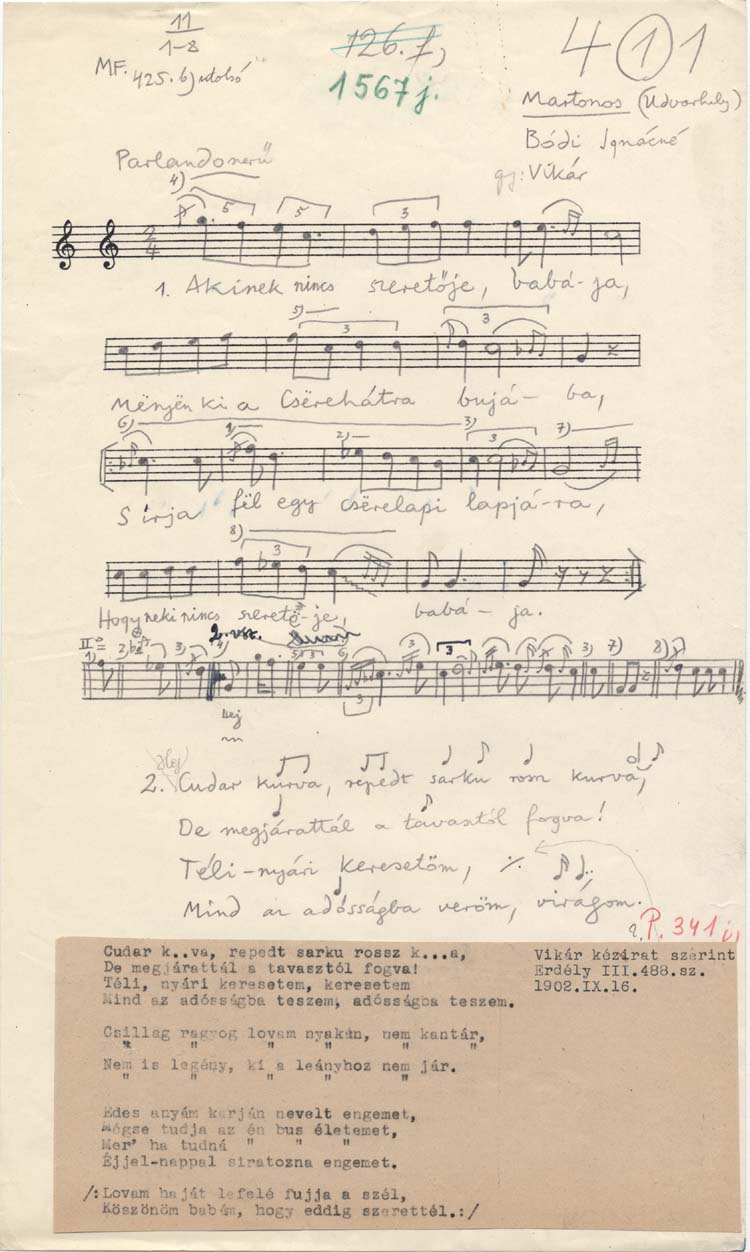 11
1-8
MF. 425. b) utolsó
126. f,
1567 j.
4 1 1
Martonos (Udvarhely)
Bódi Ignácné
gy: Vikár
Parlandonerű
4)
5 5 3
2
4
1. Akinek nincs szeretője, babá-ja,
5)
3 3
Mënjën ki a Csërehátra bujá- ba,
6) 1) 2) 3) 7)
3
S írja fël egy csërelapi lapjá-ra,
8)
3
Hogy neki nincs szerető-je, babá - ja.
2. vsz.
II°=
1) 2) 3) 4) 5) 6) 3 3 3) 7) 8)
3
2. Cudar kurva, repedt sarku rossz kurva,
De megjárattál a tavasztól fogva!
Téli-nyári keresetöm, ·/·
Mind az adósságba veröm, virágom.
P. 341 i,
Cudar k..va, repedt sarku rossz k...a,
De megjárattál a tavasztól fogva!
Téli, nyári keresetem, keresetem
Mind az adósságba teszem, adósságba teszem.
Vikár kézirat szerint
Erdély III.488.sz.
1902.IX.16.
Csillag ragyog lovam nyakán, nem kantár,
" " " " " "
Nem is legény, ki a leányhoz nem jár.
" " " " "
Édes anyám karján nevelt engemet,
Mégse tudja az én bus életemet,
Mer' ha tudná " " "
Éjjel-nappal siratozna engemet.
/:Lovam haját lefelé fujja a szél,
Köszönöm babám, hogy eddig szerettél.:/